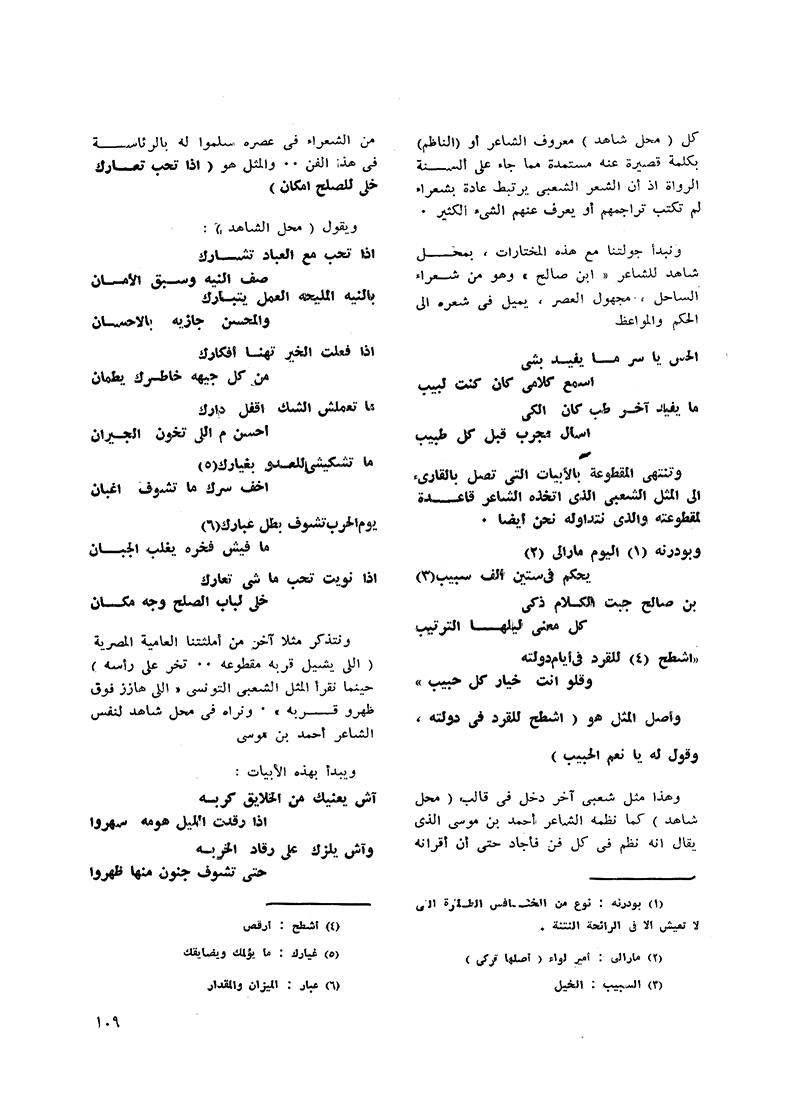 كل ( محل شاهد ) معروف الشاعر أو (الناظم)
بكلمة قصيرة عنه مستمدة مما جاء على ألسنة
الرواة اذ أن الشعر الشعبى يرتبط عادة بشعراء
لم تكتب تراجمهم أو يعرف عنهم الشىء الكثير ٠
ونبدأ جولتنا مع هذه المختارات ، بمحل
شاهد للشاعر « ابن صالح » وهو من شعراء
الساحل ، مجهول العصر ، يميل فى شعره الى
الحكم والمواعظ
الحس يا سر ما يفيد بشى
اسمع كلامى كان كنت لبيب
ما يفيد آخر طب كان الكى
اسأل مجرب قبل كل طبيب
وتنتهى المقطوعة بالأبيات التى تصل بالقارىء
الى المثل الشعبى الذى اتخذه الشاعر قاعدة
لمقطوعته والذى نتداوله نحن أيضا ٠
وبودرنه (١) اليوم مارالى (٢)
يحكم فى ستين ألف سبيب(٣)
بن صالح جبت الكلام ذكى
كل معنى ليلها الترتيب
«اشطح (٤) للقرد فى أيام دولته
وقلو انت خيار كل حبيب »
وأصل المثل هو ( اشطح للقرد فى دولته ،
وقول له يا نعم الحبيب )
وهذا مثل شعبى آخر دخل فى قالب ( محل
شاهد ) كما نظمه الشاعر أحمد بن موسى الذى
يقال انه نظم فى كل فن فأجاد حتى أن أقرانه
(١) بودرنه : نوع من الخنافس الطائرة التى
لا تعيش الا فى الرائحة النتنة .
(٢) مارالى : أمير لواء ( أصلها تركى )
(٣) السبيب : الخيل
من الشعراء فى عصره سلموا له بالرئاسة
فى هذا الفن ٠٠ والمثل هو ( اذا تحب تعارك
خلى للصلح امكان )
ويقول ( محل الشاهد ) :
اذا تحب مع العباد تشارك
صف النيه وسبق الأمان
بالنيه المليحه العمل يتبارك
والمحسن جازيه بالاحسان
اذا فعلت الخير تهنا أفكارك
من كل جيهه خاطرك يطمان
ما تعملش الشك اقفل دارك
أحسن م اللى تخون الجيران
ما تشكيشى للعدو بغيارك(٥)
اخف سرك ما تشوف اغبان
يوم الحرب تشوف بطل عبارك(٦)
ما فيش فخره يغلب الجبان
اذا نويت تحب ما شى تعارك
خلى لباب الصلح وجه مكان
ونتذكر مثلا آخر من أمثلتنا العامية المصرية
( اللى يشيل قربه مقطوعه ٠٠ تخر على رأسه )
حينما نقرأ المثل الشعبى التونسى « اللى هازز فوق
ظهرو قربه » ٠ ونراه فى محل شاهد لنفس
الشاعر أحمد بن موسى
ويبدأ بهذه الأبيات :
آش يعنيك من الخلايق كربه
اذا رقدت الليل هومه سهروا
وآش يلزك على رقاد الخربه
حتى تشوف جنون منها ظهروا
(٤) أشطح : أرقص
(٥) غيارك : ما يؤلمك ويضايقك
(٦) عبار : الميزان والمقدار
١٠٩